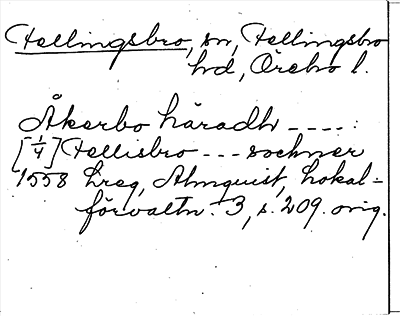 Fellingsbro, sn, Fellingsbro
hd, Örebro l.
Åkerbo häradh ----:
[1/4] Fellisbro --- sochner
1558 hreg, Almquist, Lokal=
förvaltn. 3, s. 209. orig.